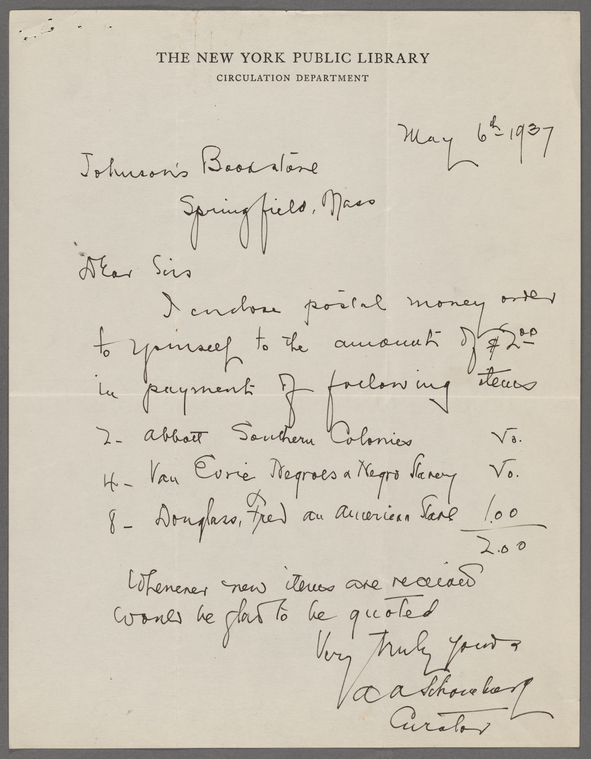 THE NEW YORK PUBLIC LIBRARY
CIRCULATION DEPARTMENT
May 6th 1937
Johnson's Bookstore
Springfield, Mass
Dear Sirs
I enclose postal money order
to yourself to the amount of $2.00
in payment of following items
2 - Abbott Southern Colonies
4 - Van Evrie Negroes & Negro Slavery
8 - Douglass, Fred an American Slave 1.00
2.00
Whenever new items are received
would be glad to be quoted
Very truly yours
A A Schomburg
Curator